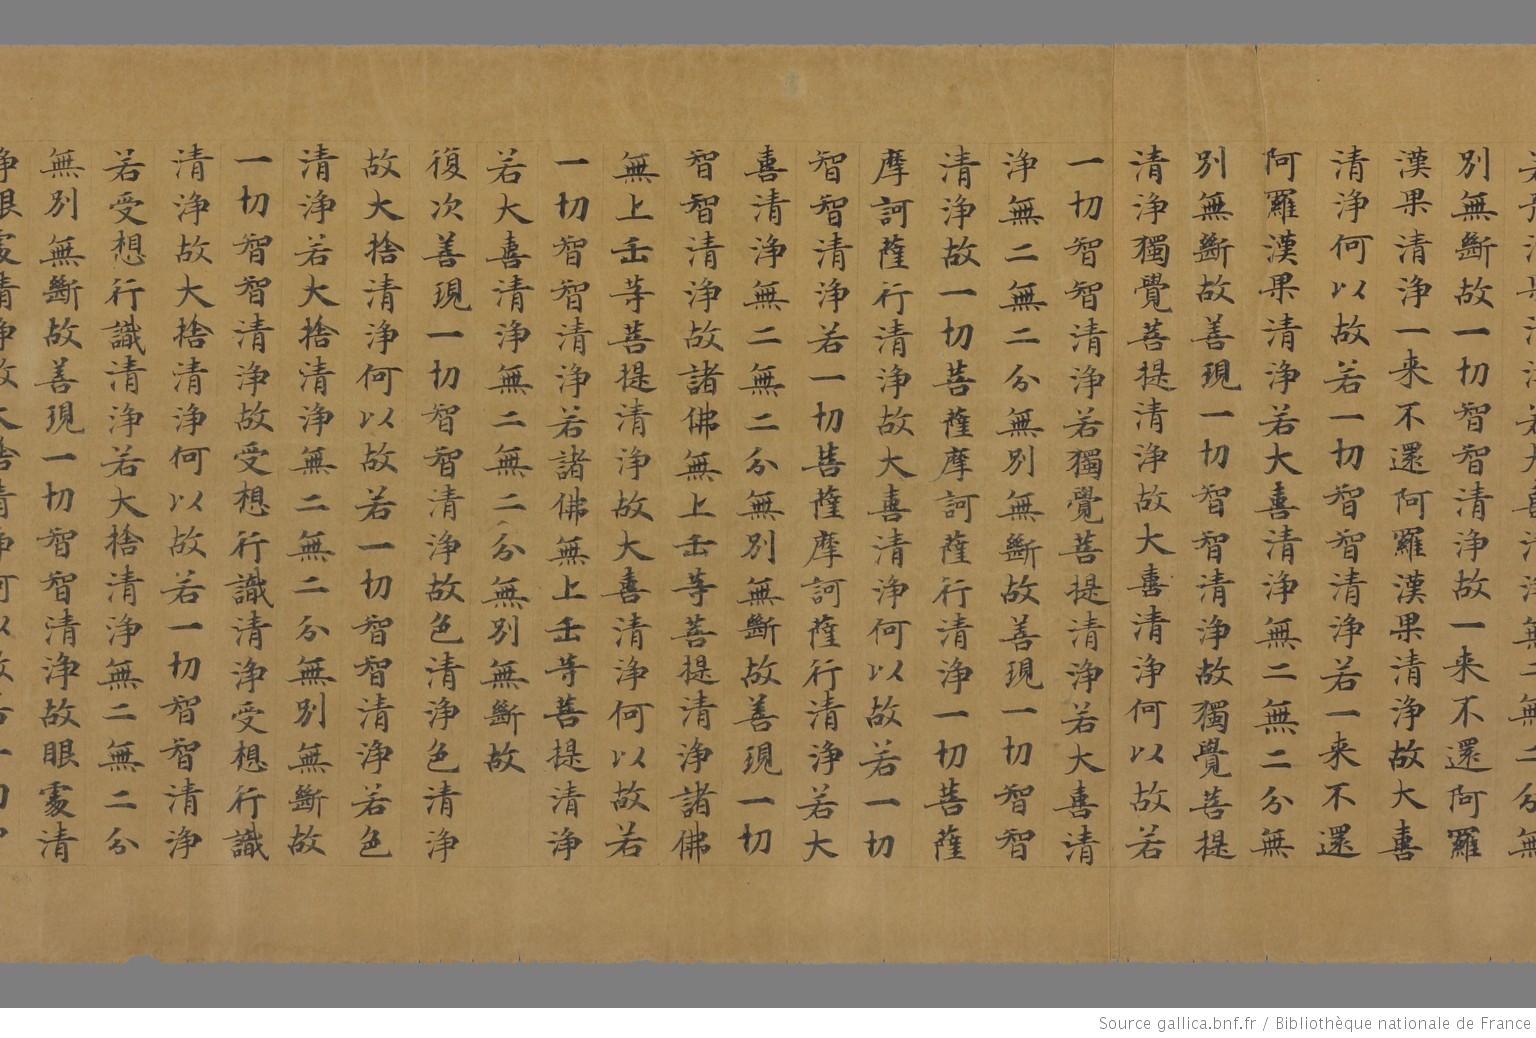 若大喜清浄無二無二分無
別無斷故一切智智清浄故一来不還阿羅
漢果清浄一来不還阿羅漢果清浄故大喜
清浄何以故若一切智智清浄若一来不還
阿羅漢果清浄若大喜清浄無二無二分無
別無斷故善現一切智智清浄故獨覺菩提
清浄獨覺菩提清浄故大喜清浄何以故若
一切智智清浄若獨覺菩提清浄若大喜清
浄無二無二分無別無斷故善現一切智智
清浄故一切菩薩摩訶薩行清浄一切菩薩
摩訶薩行清浄故大喜清浄何以故若一切
智智清浄若一切菩薩摩訶薩行清浄若大
喜清浄無二無二分無別無斷故善現一切
智智清浄故諸佛無上正等菩提清浄諸佛
無上正等菩提清浄故大喜清浄何以故若
一切智智清浄若諸佛無上正等菩提清浄
若大喜清浄無二無二分無別無斷故
復次善現一切智智清浄故色清浄色清浄
故大捨清浄何以故若一切智智清浄若色
清浄若大捨清浄無二無二分無別無斷故
一切智智清浄故受想行識清浄受想行識
清浄故大捨清浄何以故若一切智智清浄
若受想行識清浄若大捨清浄無二無二分
無別無斷故善現一切智智清浄故眼處清
浄眼處清浄故大捨清浄何以故若一切
Source gallica.bnf.fr / Bibliothèque nationale de France